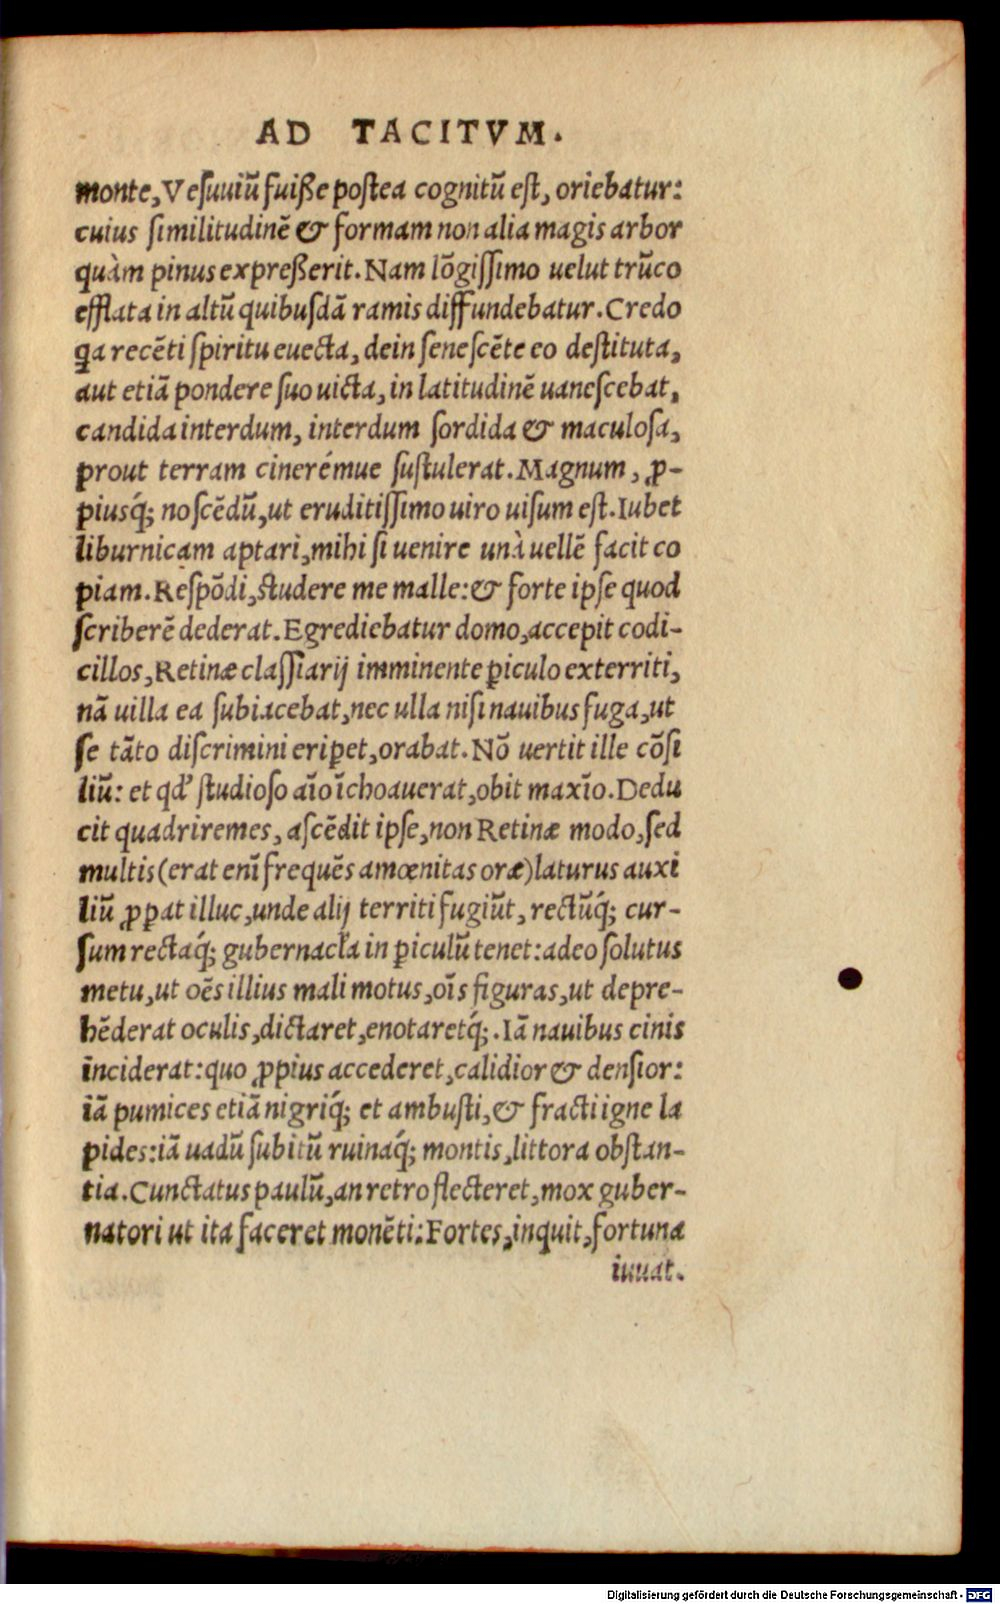 AD TACITVM.
monte, Veſuuiū fuiße poſtea cognitū eſt, oriebatur:
cuius ſimilitudinē & formam non alia magis arbor
quàm pinus expreßerit. Nam lōgiſſimo uelut trūco
efflata in altū quibuſdā ramis diffundebatur. Credo
ꝗa recēti ſpiritu euecta, dein ſeneſcēte eo deſtituta,
aut etiā pondere ſuo uicta, in latitudinē uaneſcebat,
candida interdum, interdum ſordida & maculoſa,
prout terram cinerémue ſuſtulerat. Magnum, ꝓ-
piusq́; noſcēdū, ut eruditiſſimo uiro uiſum eſt. Iubet
liburnicam aptari, mihi ſi uenire unà uellē facit co
piam. Reſpōdi, ſtudere me malle: & forte ipſe quod
ſcriberē dederat. Egrediebatur domo, accepit codi-
cillos, Retinæ claſſiarij imminente ꝑiculo exterriti,
nā uilla ea ſubiacebat, nec ulla niſi nauibus fuga, ut
ſe tāto diſcrimini eriꝑet, orabat. Nō uertit ille cōſi
liū: et qd' ſtudioſo aīo īchoauerat, obit maxīo. Dedu
cit quadriremes, aſcēdit ipſe, non Retinæ modo, ſed
multis (erat enī frequēs amœnitas oræ) laturus auxi
liū ꝓꝑat illuc, unde alij territi fugiūt, rectūq́; cur-
ſum rectaq́; gubernacła in ꝑiculū tenet: adeo ſolutus
metu, ut oēs illius mali motus, oīs figuras, ut depre-
hēderat oculis, dictaret, enotaretq́;. Iā nauibus cinis
inciderat: quo ꝓpius accederet, calidior & denſior:
iā pumices etiā nigriq́; et ambuſti, & fracti igne la
pides: iā uadū ſubitū ruinaq́; montis, littora obſtan-
tia. Cunctatus paulū, an retro flecteret, mox guber-
natori ut ita faceret monēti: Fortes, inquit, fortuna
iuuat.
Digitalisierung gefördert durch die Deutsche Forschungsgemeinschaft - DFG